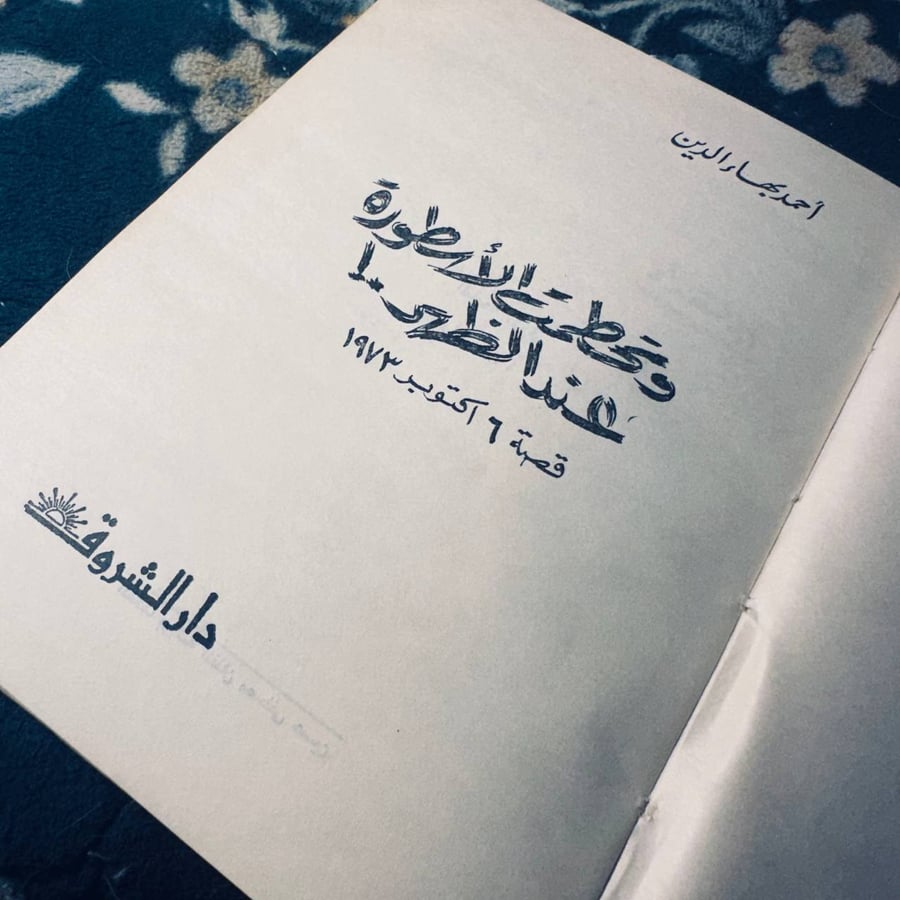 أحمد بهاء الدين
وتحطمت الأسطورة
عند الظهر..!
قصة ٦ اكتوبر ١٩٧٣
دار الشروق